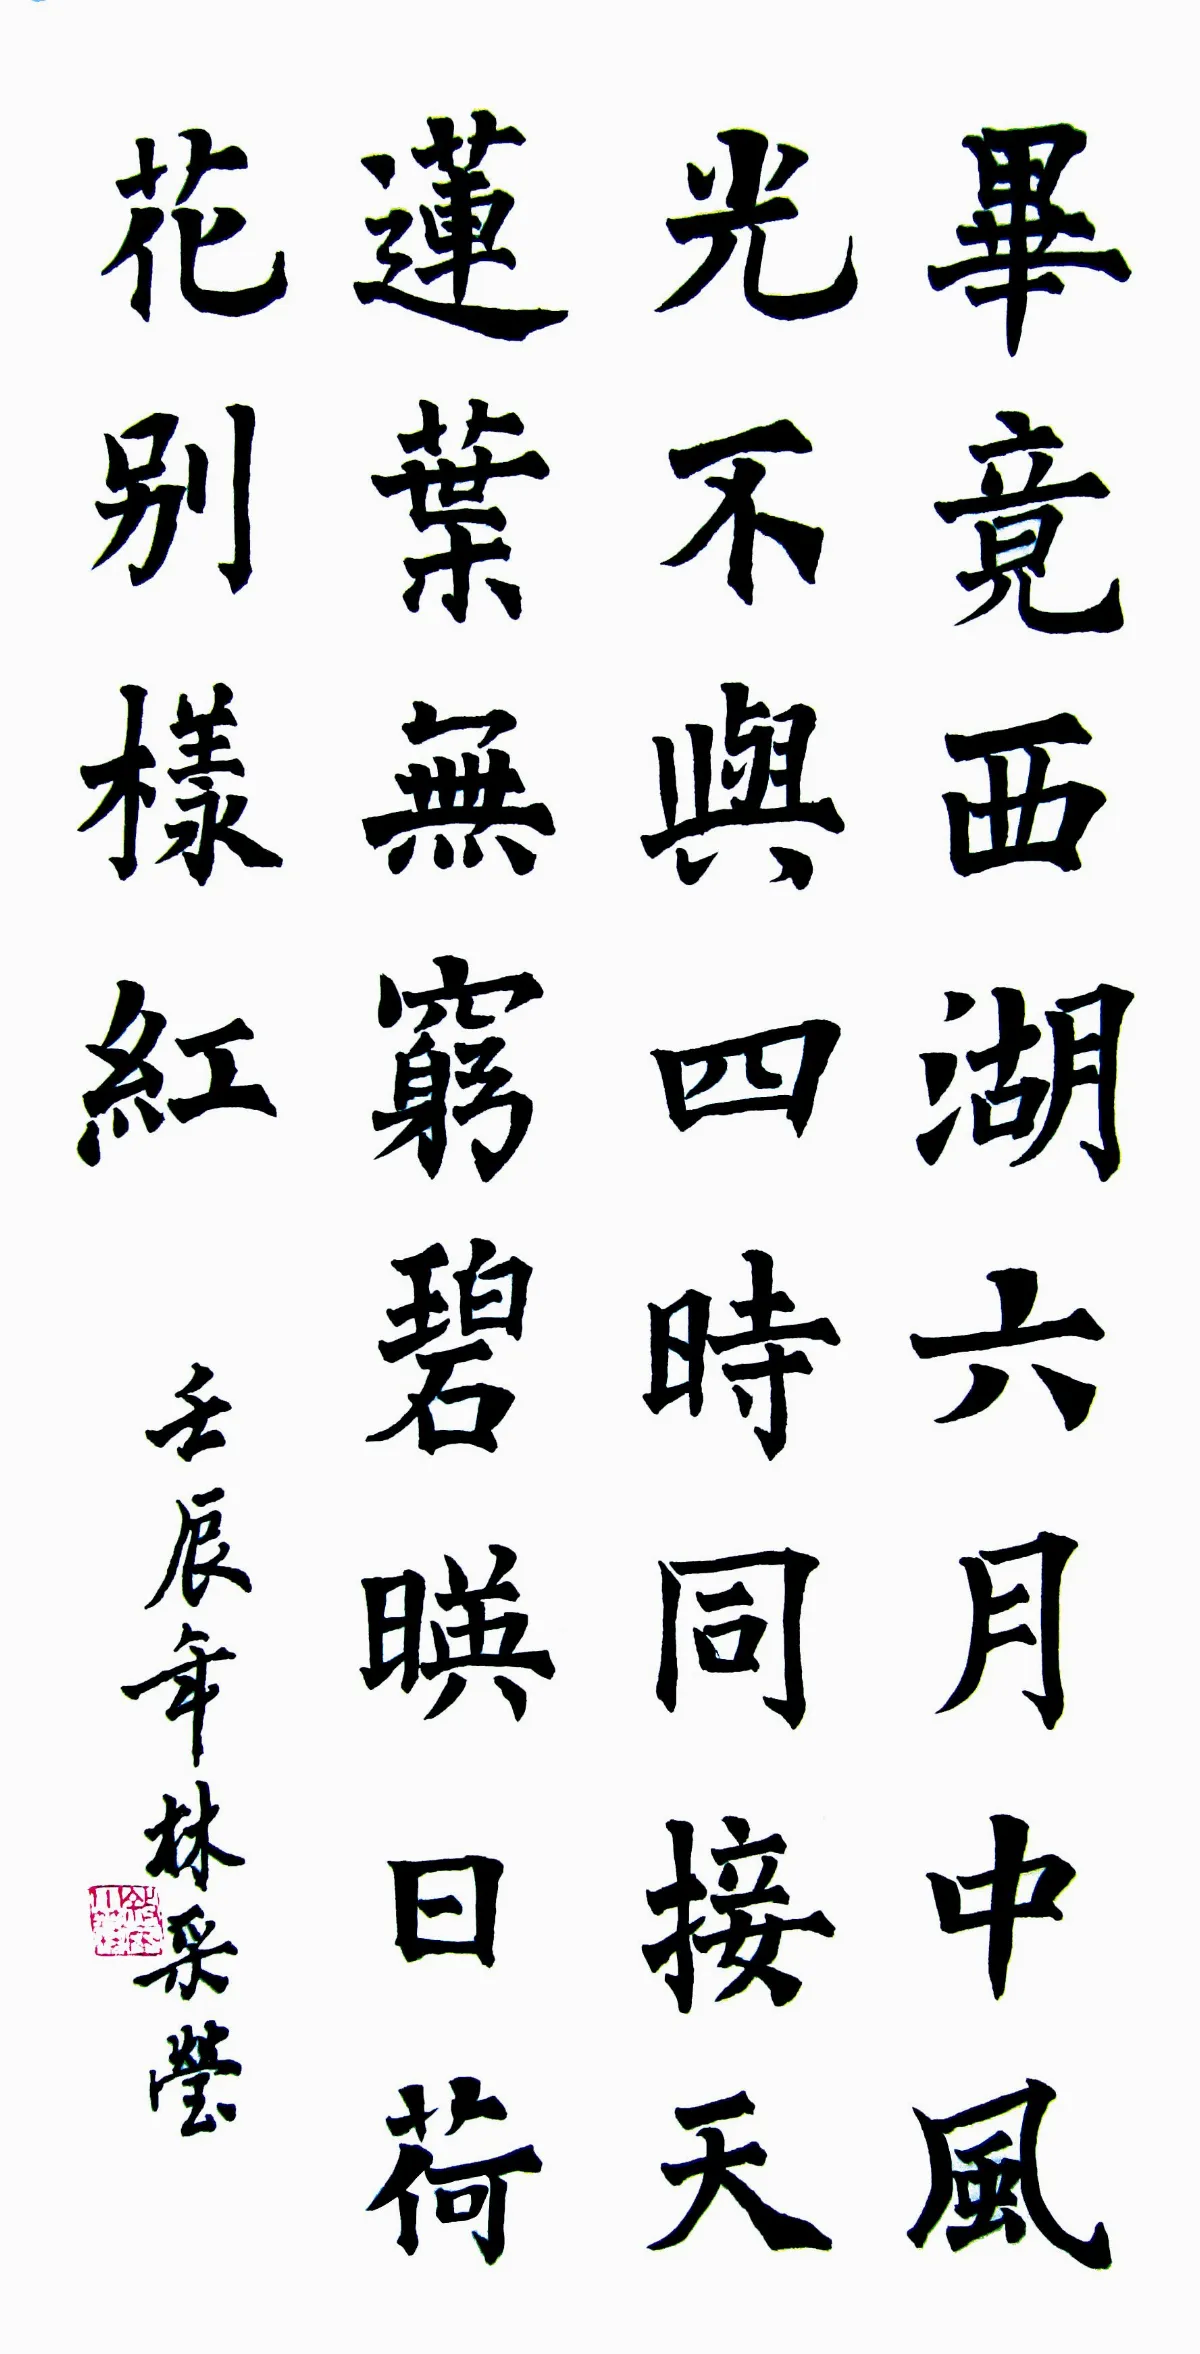 畢竟西湖六月中風
光不與四時同接天
蓮葉無窮碧暎日荷
花别樣紅
壬辰年林采瑩